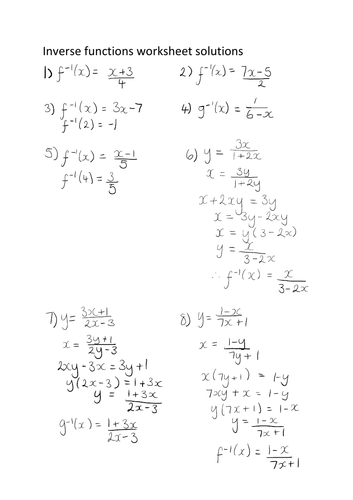 Inverse functions worksheet solutions
1) f⁻¹(x) = (x+3)/4
2) f⁻¹(x) = (7x-5)/2
3) f⁻¹(x) = 3x-7
f⁻¹(2) = -1
4) g⁻¹(x) = 1/(6-x)
5) f⁻¹(x) = (x-1)/5
f⁻¹(4) = 3/5
6) y = 3x/(1+2x)
x = 3y/(1+2y)
x + 2xy = 3y
x = 3y - 2xy
x = y(3-2x)
y = x/(3-2x)
∴ f⁻¹(x) = x/(3-2x)
7) y = (3x+1)/(2x-3)
x = (3y+1)/(2y-3)
2xy - 3x = 3y+1
y(2x-3) = 1+3x
y = (1+3x)/(2x-3)
g⁻¹(x) = (1+3x)/(2x-3)
8) y = (1-x)/(7x+1)
x = (1-y)/(7y+1)
x(7y+1) = 1-y
7xy + x = 1-y
y(7x+1) = 1-x
y = (1-x)/(7x+1)
f⁻¹(x) = (1-x)/(7x+1)